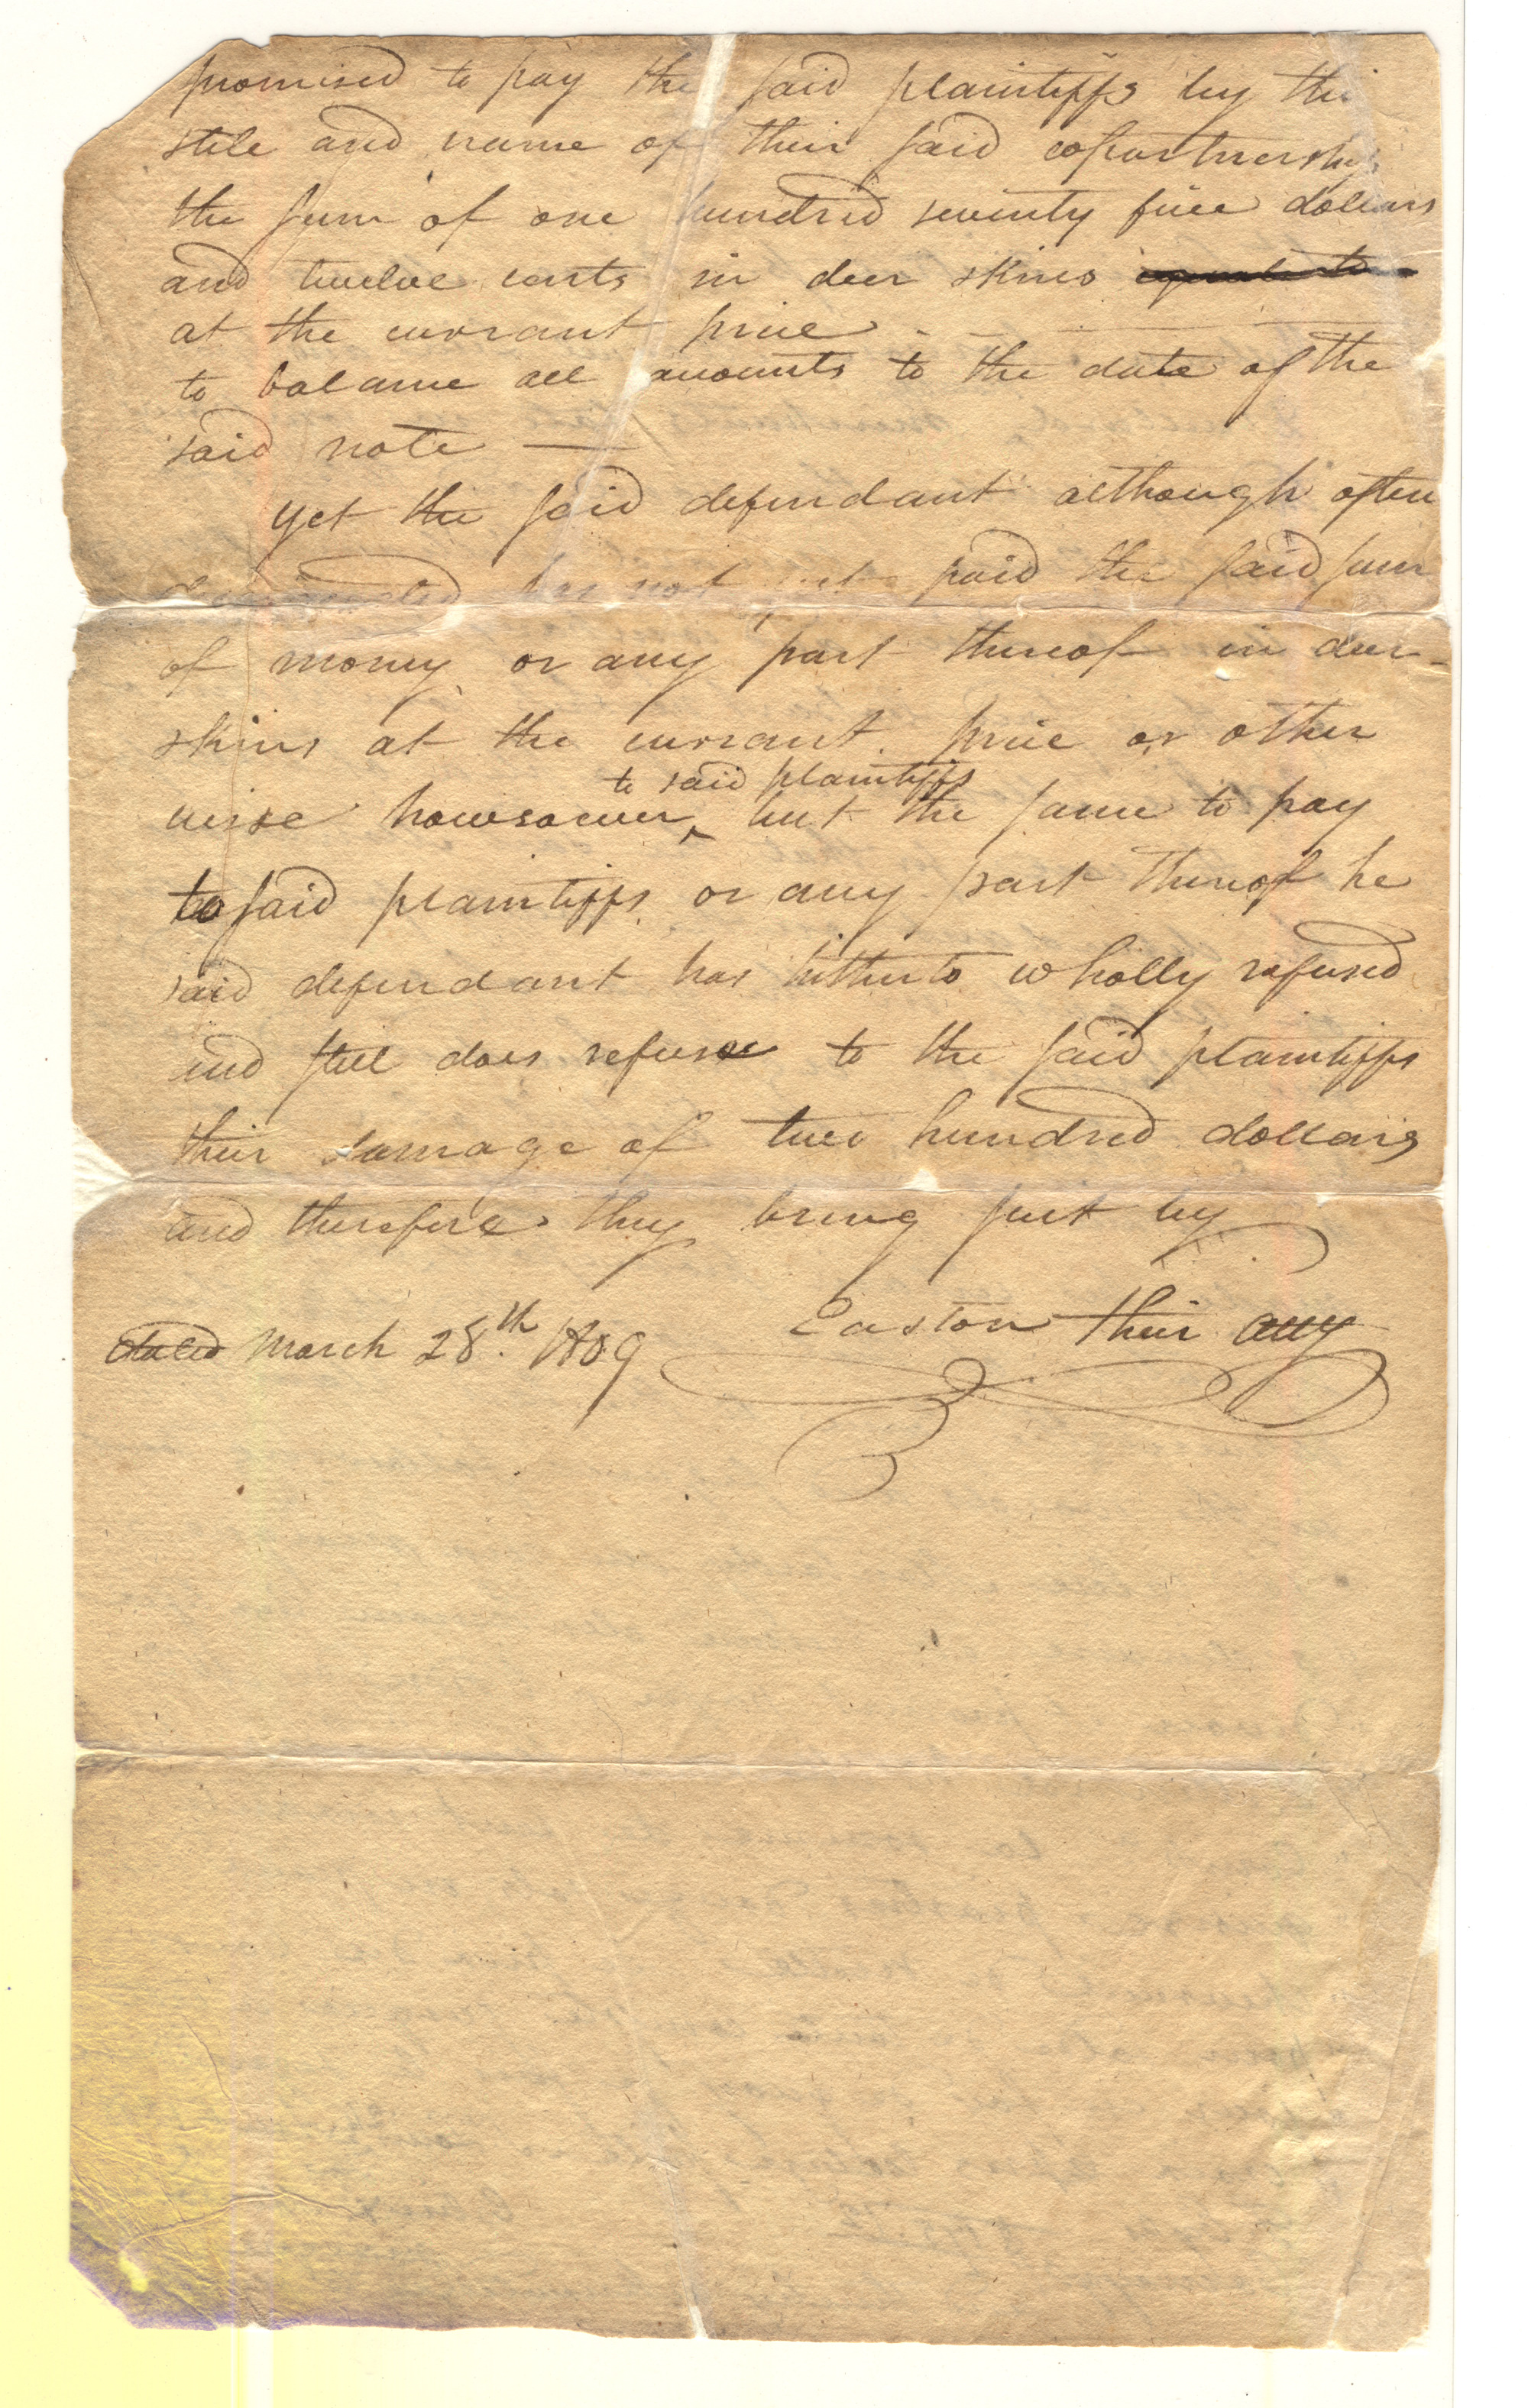 promised to pay the said plaintiffs by the
stile and name of their said copartnership
the sum of one hundred seventy five dollars
and twelve cents in deer skins
at the currant price - -
to balance all accounts to the date of the
said note —
yet the said defendant although often
has not yet paid the said sum
of money or any part thereof in deer-
skins at the currant price or other
to said plaintiffs
wise howsoever, ^ but the same to pay
to said plaintiffs or any part thereof he
said defendant has hitherto wholly refused
and still does refuse to the said plaintiffs
their damage of two hundred dollars
and therefore they bring suit by
Easton their atty
dated March 28th. 1809